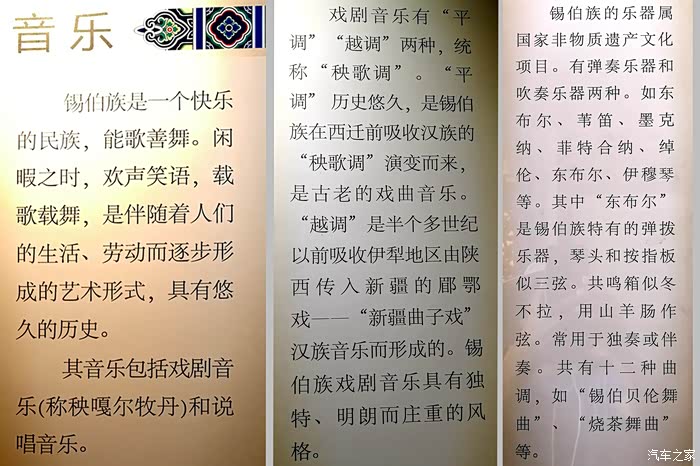 音乐
锡伯族是一个快乐
的民族，能歌善舞。闲
暇之时，欢声笑语，载
歌载舞，是伴随着人们
的生活、劳动而逐步形
成的艺术形式，具有悠
久的历史。
其音乐包括戏剧音
乐(称秧嘎尔牧丹)和说
唱音乐。
戏剧音乐有“平
调”“越调”两种，统
称“秧歌调”。“平
调”历史悠久，是锡伯
族在西迁前吸收汉族的
“秧歌调”演变而来，
是古老的戏曲音乐。
“越调”是半个多世纪
以前吸收伊犁地区由陕
西传入新疆的郿鄠
戏——“新疆曲子戏”
汉族音乐而形成的。锡
伯族戏剧音乐具有独
特、明朗而庄重的风
格。
锡伯族的乐器属
国家非物质遗产文化
项目。有弹奏乐器和
吹奏乐器两种。如东
布尔、苇笛、墨克
纳、菲特合纳、绰
伦、东布尔、伊穆琴
等。其中“东布尔”
是锡伯族特有的弹拨
乐器，琴头和按指板
似三弦。共鸣箱似冬
不拉，用山羊肠作
弦。常用于独奏或伴
奏。共有十二种曲
调，如“锡伯贝伦舞
曲”、“烧茶舞曲”
等。
汽车之家